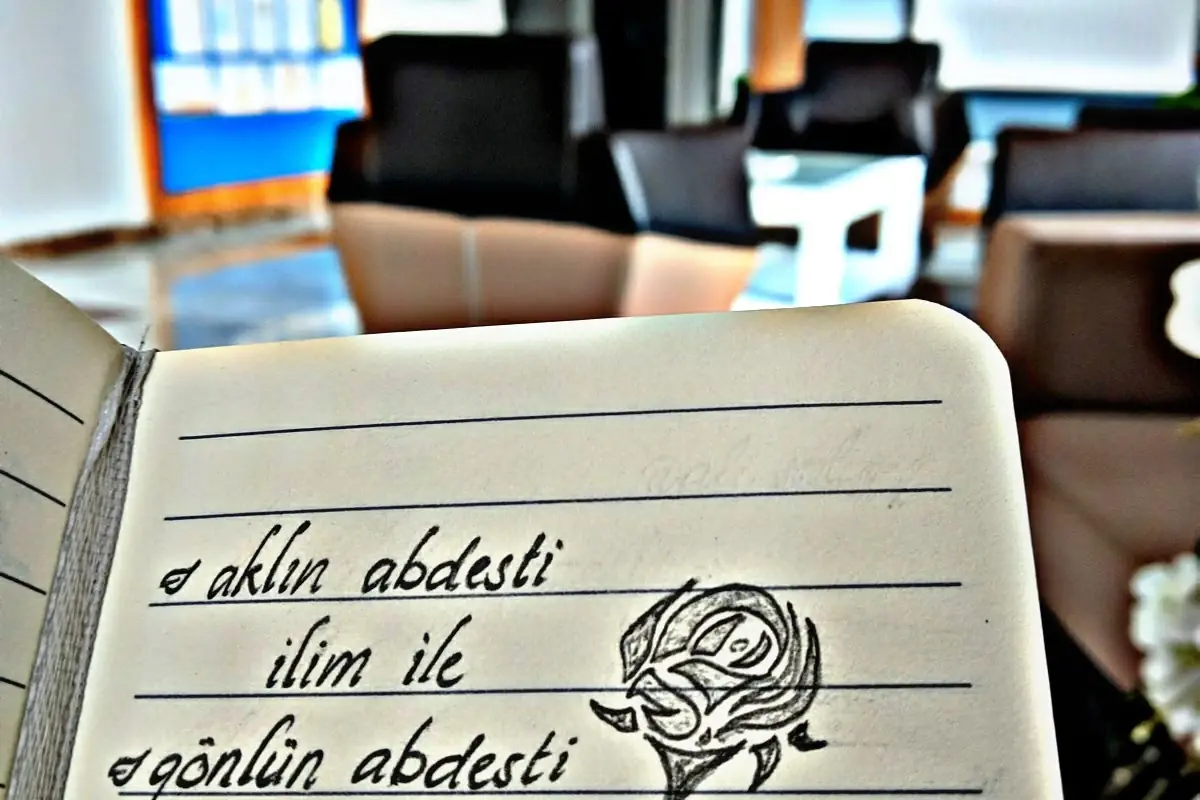 aklın abdesti
ilim ile
gönlün abdesti